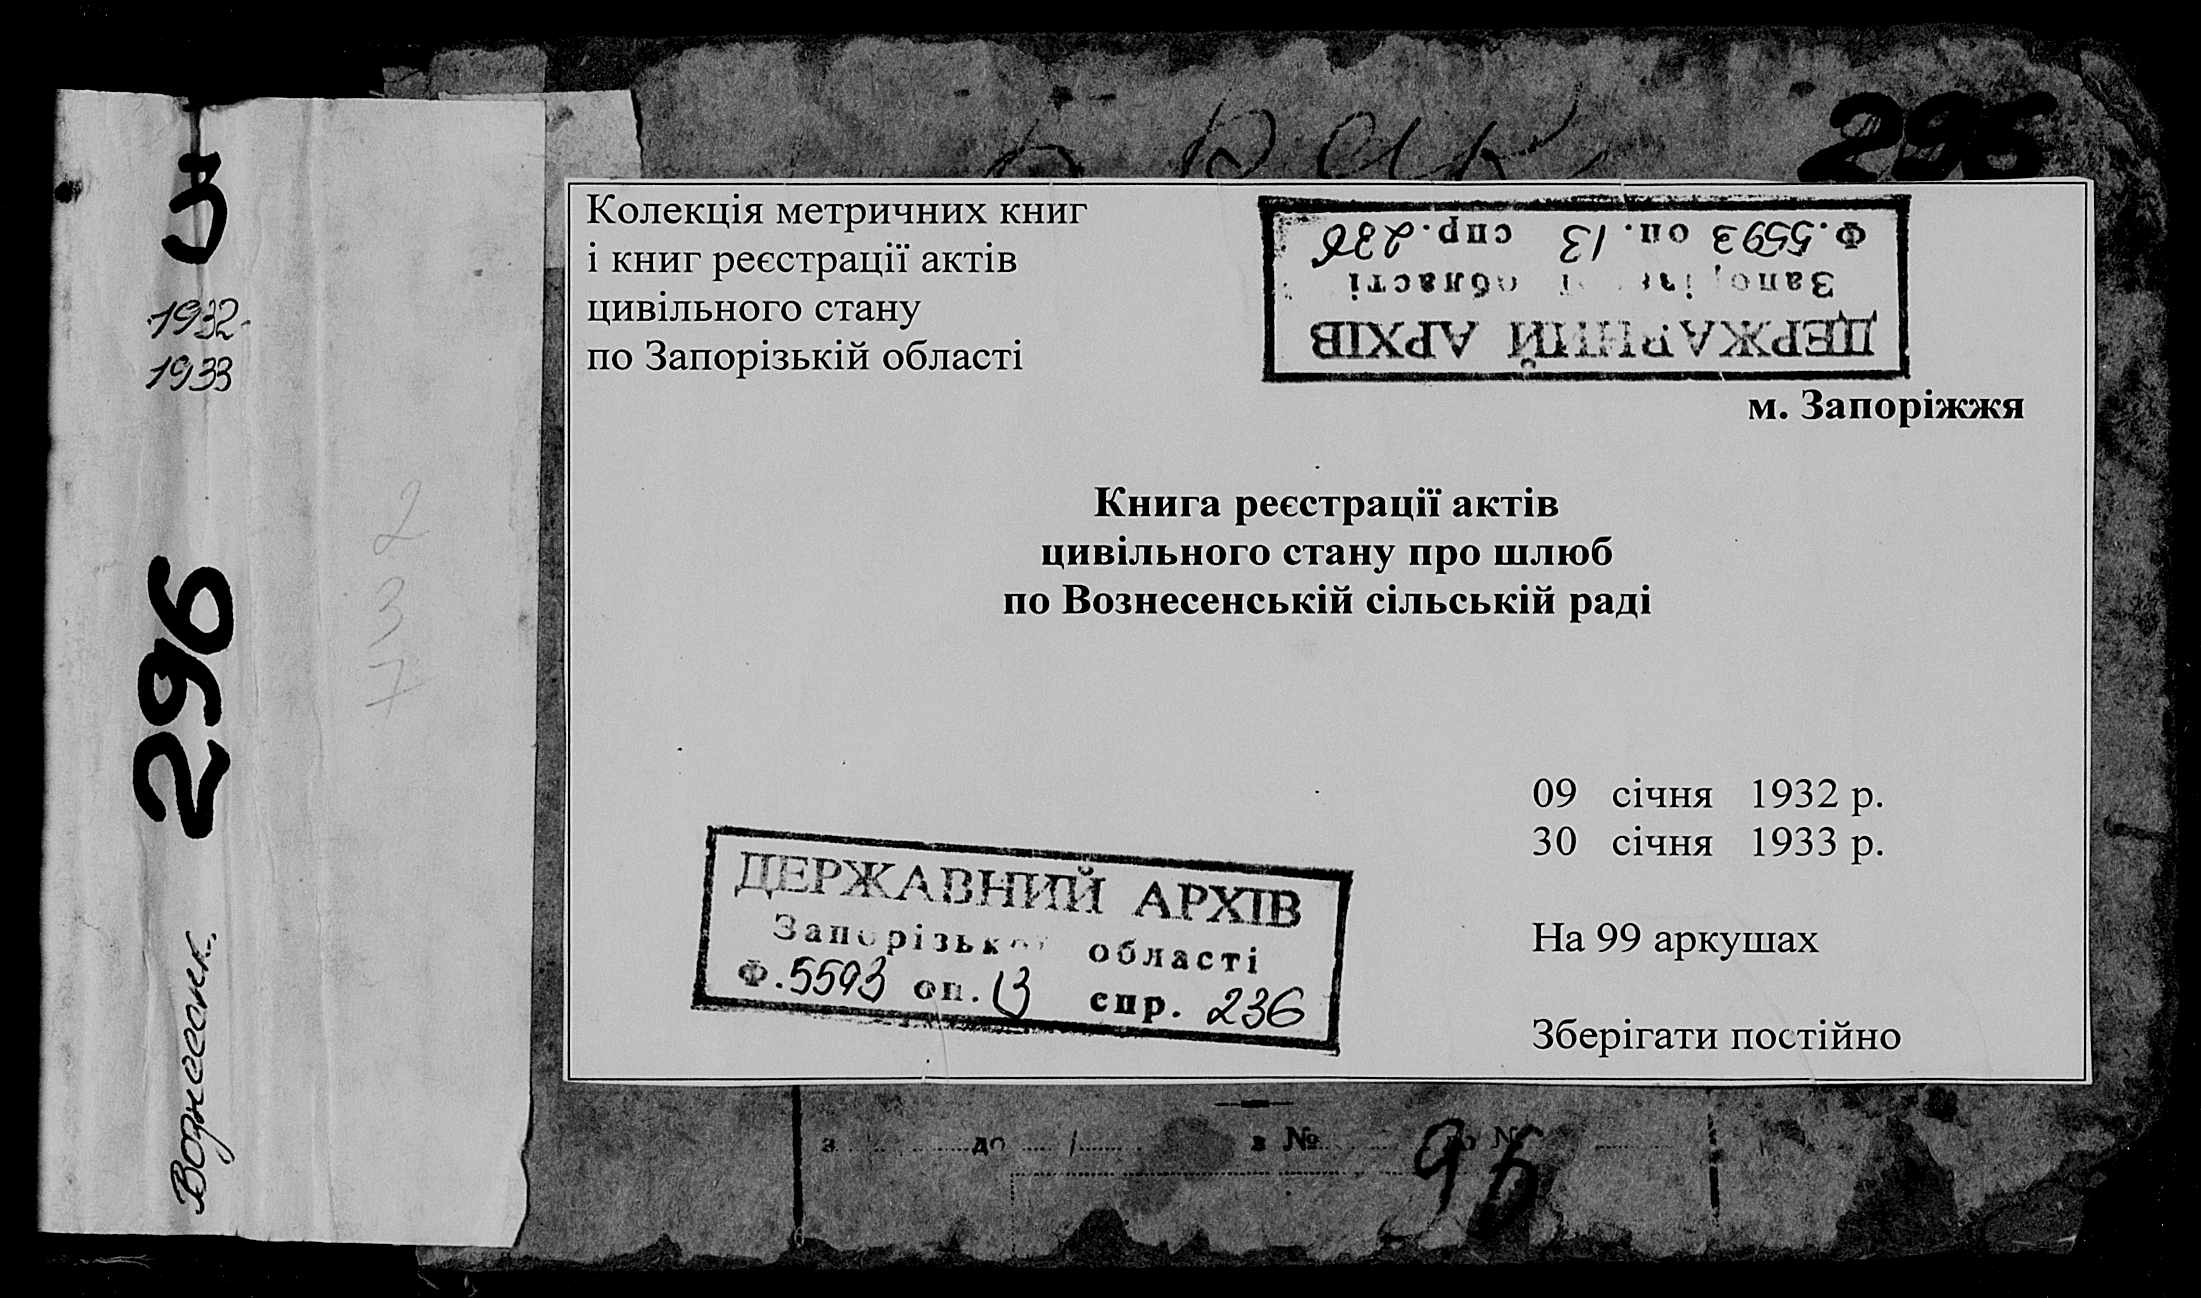 3
1932-
1933
296
Вознесенк.
2
3
7
296
Колекція метричних книг
і книг реєстрації актів
цивільного стану
по Запорізькій області
ДЕРЖАВНИЙ АРХІВ
Запорізької області
Ф.5593 оп.13 спр.236
м. Запоріжжя
Книга реєстрації актів
цивільного стану про шлюб
по Вознесенській сільській раді
09 січня 1932 р.
30 січня 1933 р.
На 99 аркушах
Зберігати постійно
ДЕРЖАВНИЙ АРХІВ
Запорізької області
Ф.5593 оп.13 спр. 236
з до з № по №